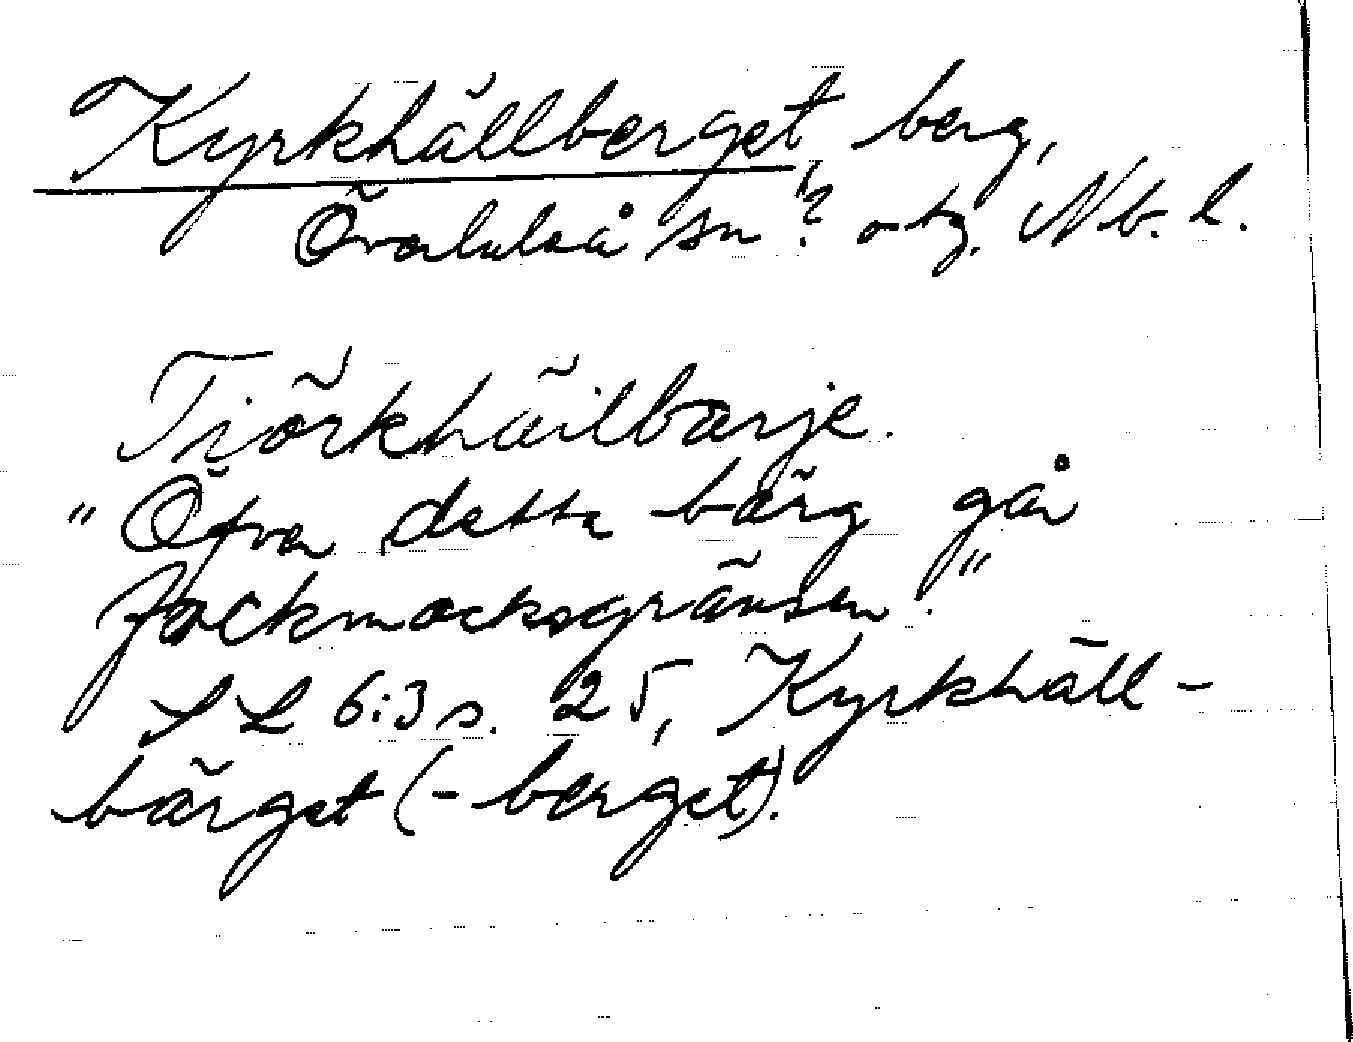 Kyrkhällberget berg,
Överluleå sn? o tg. Nb. l.
Tjörkhäilbarje.
"Öfver detta bärg går
Jockmocksgränsen."
SL 6:3 s. 25, Kyrkhäll-
bärget (-berget).